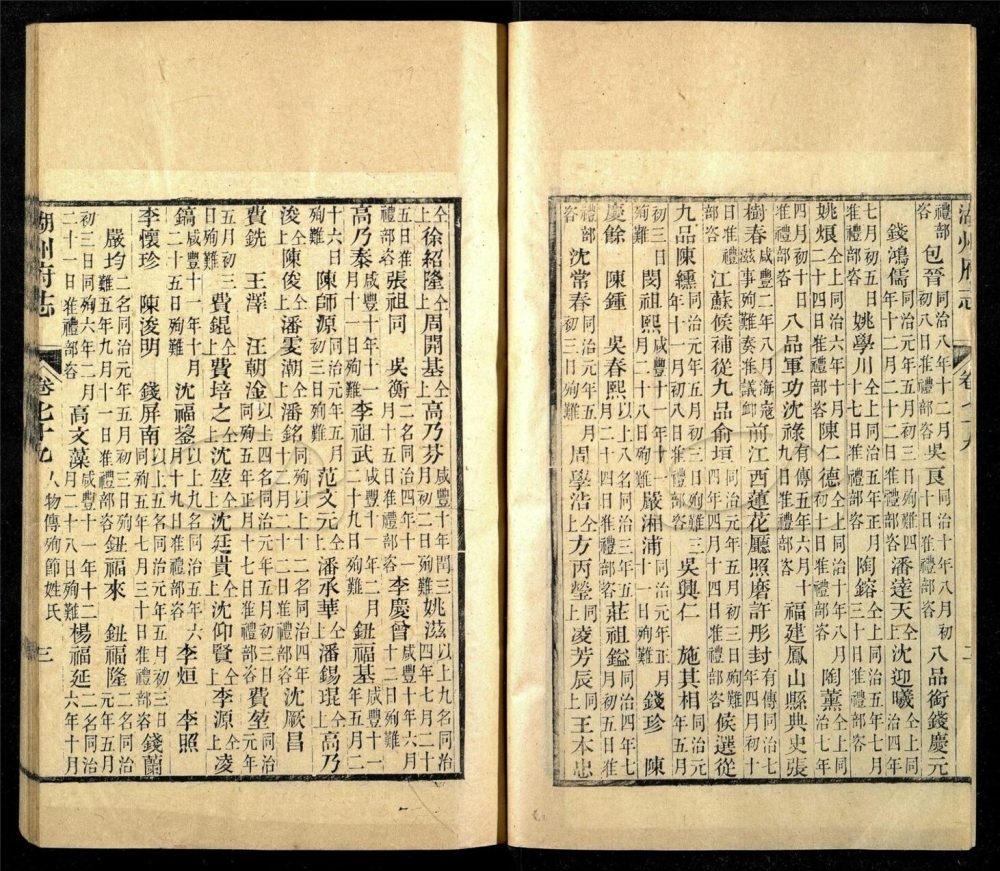 湖州府志 卷七十九 二
禮部咨 包晉 同治八年十二月初八日准禮部咨 吳良 同治十年八月初十日准禮部咨 八品銜錢慶元
錢鴻儒 同治元年五月初三日殉難四年十二月二十二日准禮部咨 潘達天 仝上 沈迎曦 仝上同治四年
七月初五日准禮部咨 姚學川 仝上同治五年正月十七日准禮部咨 陶鎔 仝上同治五年七月三十日准禮部咨
姚烺 仝上同治六年十月二十四日准禮部咨 陳仁德 仝上同治十年八月初十日准禮部咨 陶薰 仝上同治七年
四月初十日准禮部咨 八品軍功沈祿 有傳五年六月十九日准禮部咨 福建鳳山縣典史張
樹春 咸豐二年八月海寇滋事殉難奏准議卹 前江西蓮花廳照磨許彤封 有傳同治七年四月初十
日准禮部咨 江蘇候補從九品俞垣 同治元年五月初三日殉難四年四月十四日准禮部咨 候選從
九品陳纁 年十一月初八日准禮部咨 吳興仁 施其相 同治元年五月
初三日殉難 閔祖熙 咸豐十一年正月二十八日殉難 嚴湘浦 同治元年正月二十一日殉難 錢珍 陳
慶餘 陳鍾 吳春熙 以上八名同治三年五月二十四日准禮部咨 莊祖鎰 同治四年七月初五日准
禮部咨 沈常春 同治元年五月初三日殉難 周學浩 仝上 方丙瑩 同上 凌芳辰 同上 王本忠
仝上 徐紹隆 仝上 周開基 仝上 高乃芬 咸豐十年閏三月初二日殉難 姚滋 以上九名同治四年七月二十
五日准禮部咨 張祖同 吳衡 二名同治四年十一月二十五日准禮部咨 李慶曾 咸豐十年六月十二日殉難
高乃泰 咸豐十年十一月十一日殉難 李祖武 咸豐十一年二月二十九日殉難 鈕福基 咸豐十一年五月二
十六日殉難 陳師源 同治元年五月初三日殉難 范文元 仝上 潘承華 仝上 潘錫琨 仝上 高乃
浚 仝上 陳俊 仝上 潘雯潮 仝上 潘銘 同殉以上十二名同治四年十二月二十二日准禮部咨 沈厥昌
費銑 王澤 汪朝淦 以上四名同治元年五月初三日同殉五年正月十七日准禮部咨 費堃 同治元年
五月初三日殉難 費錕 仝上 費培之 仝上 沈堃 仝上 沈廷貴 仝上 沈仰賢 仝上 李源 仝上 凌
鎬 咸豐十一年十月二十五日殉難 沈福蓥 以上九名同治五年六月十九日准禮部咨 李烜 李照
李懷珍 陳浚明 錢屏南 以上五名同治元年五月初三日同殉五年七月三十日准禮部咨 錢蘭
嚴均 二名同治元年五月初三日殉難五年九月十一日准禮部咨 鈕福來 鈕福隆 二名同治元年五月
初三日同殉六年二月二十一日准禮部咨 高文藻 咸豐十一年十二月二十八日殉難 楊福延 二名同治六年十月
湖州府志 卷七十九 人物傳殉節姓氏 三